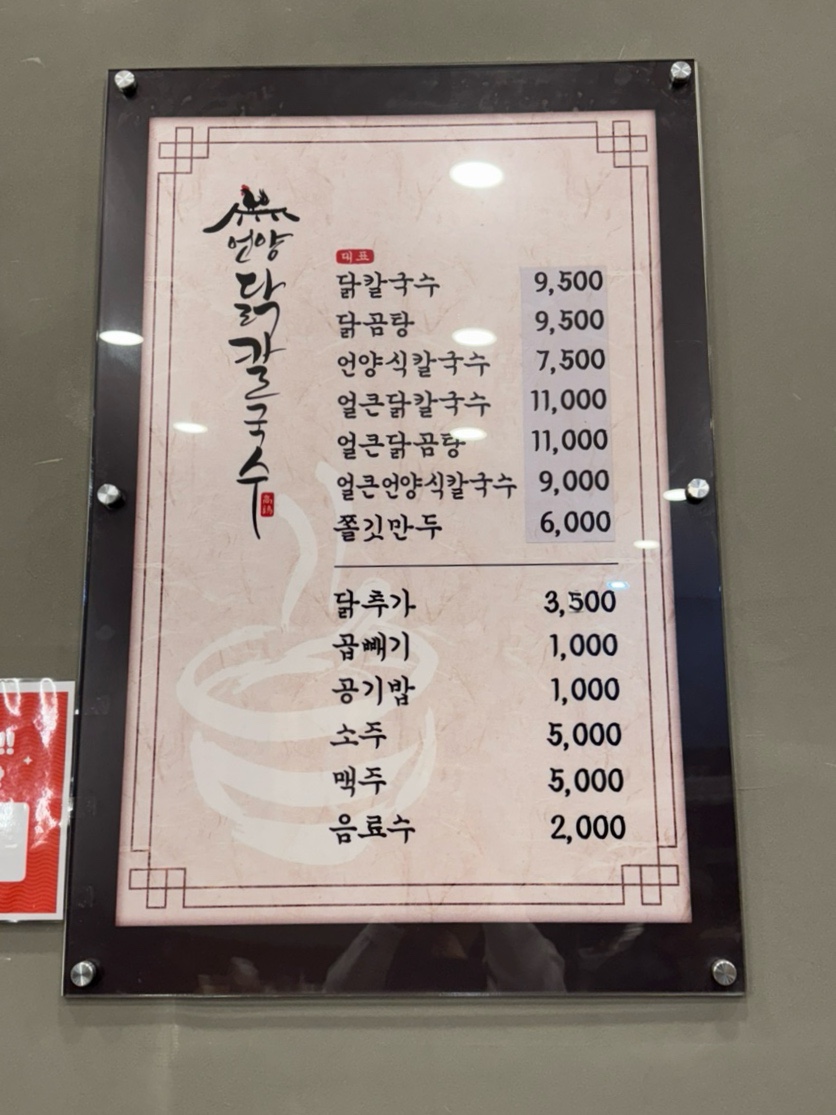 언양
닭칼국수
대표
닭칼국수 9,500
닭곰탕 9,500
언양식칼국수 7,500
얼큰닭칼국수 11,000
얼큰닭곰탕 11,000
얼큰언양식칼국수 9,000
쫄깃만두 6,000
닭추가 3,500
곱빼기 1,000
공기밥 1,000
소주 5,000
맥주 5,000
음료수 2,000
!!